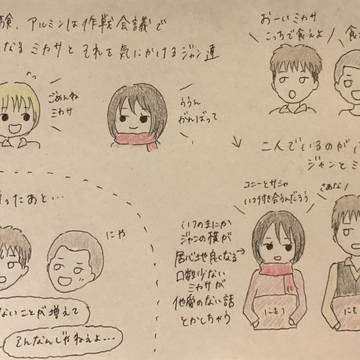 験、アルミンは作戦会議で
なる ミカサとそれを気にかけるジャン達
ごめんね
ミカサ
ううん
がんばって
おーい ミカサ
こっちで食えよ
食
二人でいるのが
ジャンとミ
コニーとサシャ
いつ付き合うんだろう
さあな
いつのまにか
ジャンの横が
居心地良くなる
口数少ない
ミカサが
他愛のない話
とかしちゃう
ったあと…
にや
ないことが増えて
そんなんじゃねぇよ…